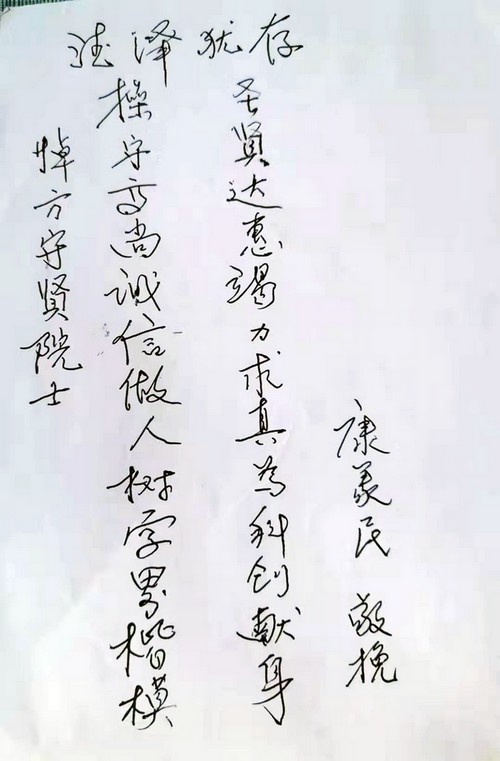 德泽犹存
悼方守贤院士
操守高尚诚信做人树学界楷模
圣贤达惠竭力求真為科创献身
康美民 敬挽